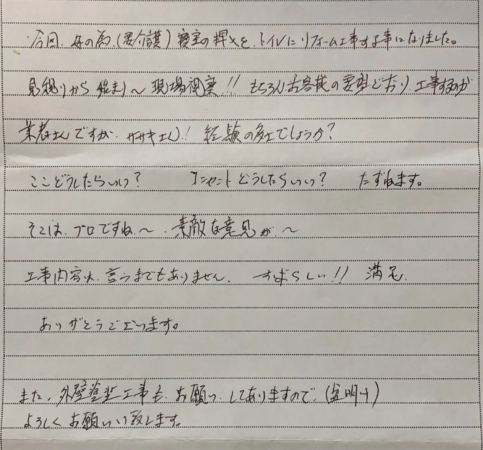 今回、母の為、(要介護) 寝室の押入を、トイレにリフォーム工事する事になりました。
見積りから始まり〜現場調査!! もちろんお客様の要望どおり工事するのが
業者さんですが、ササキさん! 経験の多さでしょうか?
ここどうしたらいい? コンセントどうしたらいい? たずねます。
そこは、プロですね〜、素敵な意見が〜
工事内容は、言うまでもありません。すばらしい!! 満足
ありがとうございます。
また、外壁塗装工事も、お願いしてありますので、(盆明け)
よろしくお願い致します。